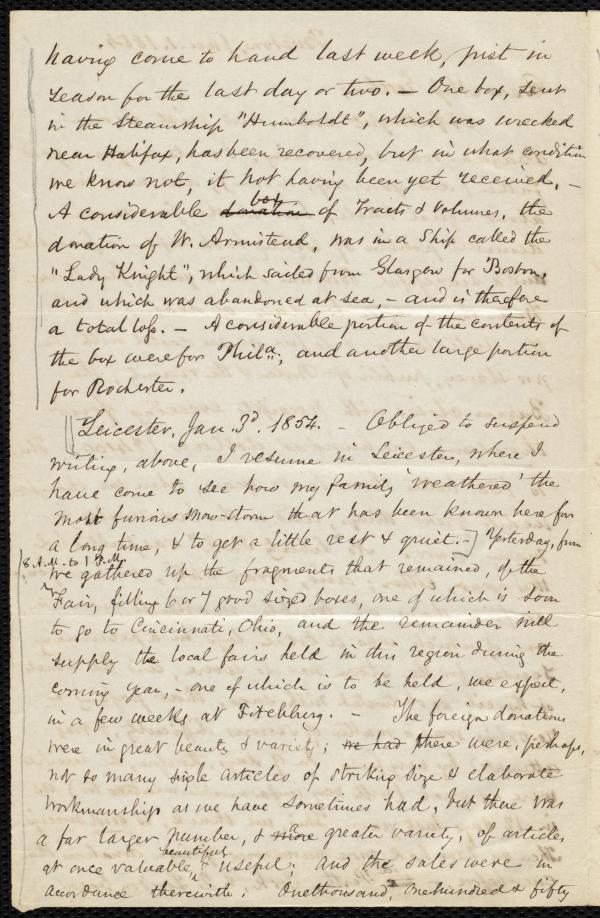 having come to hand last week, just in
season for the last day or two. — One box, sent
in the Steamship "Humboldt", which was wrecked
near Halifax, has been recovered, but in what condition
we know not, it not having been yet received. —
A considerable donation box of Tracts & Volumes, the
donation of W. Armistead, was in a Ship called the
"Lady Knight", which sailed from Glasgow for Boston,
and which was abandoned at sea, — and is therefore
a total loss. — A considerable portion of the contents of
the box were for Phila; and another large portion
for Rochester.
Leicester, Jan. 3d. 1854. — Obliged to suspend
writing, above, I resume in Leicester, where I
have come to see how my family 'weathered' the
most furious snow-storm that has been known here for
a long time, & to get a little rest & quiet. —] Yesterday, from
8 A.M. to 1 P.M.
we gathered up the fragments that remained, of the
Fair, filling 6 or 7 good sized boxes, one of which is soon
to go to Cincinnati, Ohio, and the remainder will
supply the local fairs held in this region during the
coming year, — one of which is to be held, we expect,
in a few weeks at Fitchburg. — The foreign donations
were in great beauty & variety; we had there were, perhaps,
not so many single articles of striking size & elaborate
workmanship as we have sometimes had, but there was
a far larger number, & more greater variety, of articles
beautiful,
at once valuable, & useful; and the sales were in
accordance therewith. One thousand, one hundred & fifty